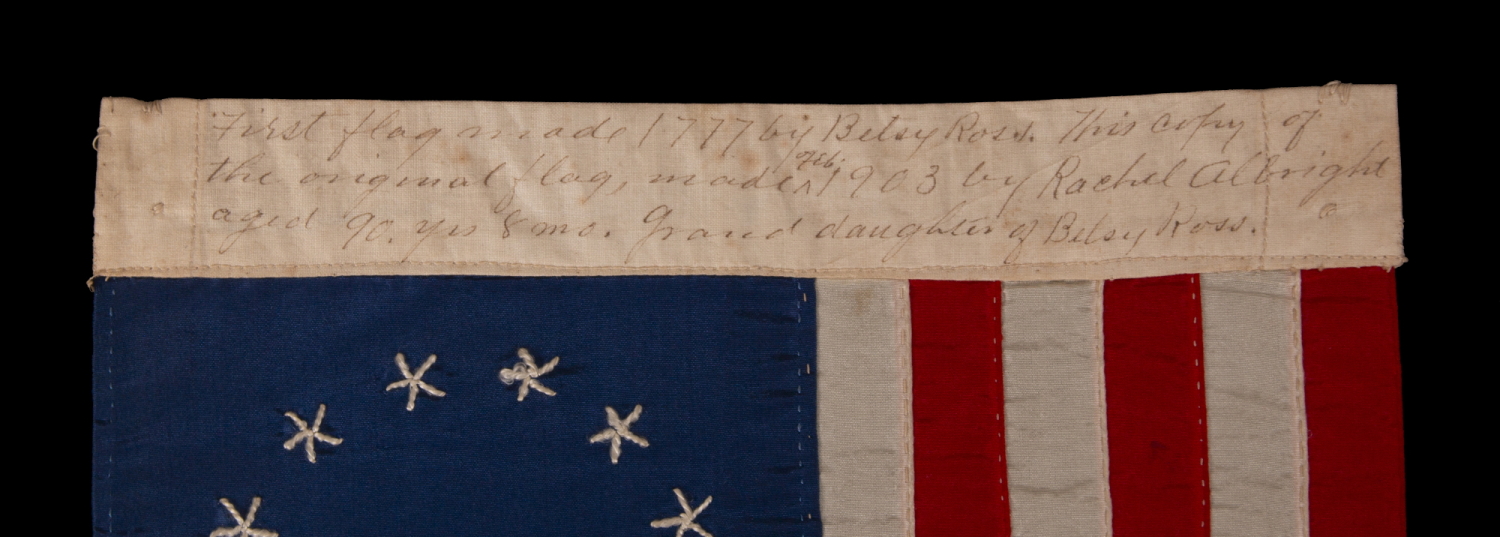 First flag made 1777 by Betsy Ross. This copy of
the original flag, made ^Feb. 1903 by Rachel Albright
aged 90. yrs 8 mo. Grand daughter of Betsy Ross.